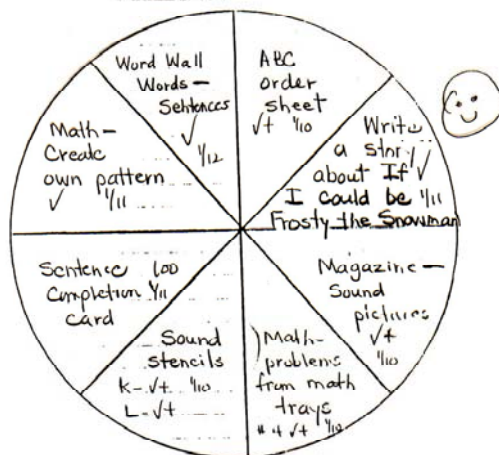 Word Wall
Words –
Sentences
✓
1/12
ABC
order
sheet
✓+ 1/10
Write
a story ✓
about If
I could be 1/11
Frosty the Snowman
Magazine –
Sound
pictures
✓+
1/10
Math-
problems
from math
trays
#4 ✓+ 1/10
Sound
stencils
K-✓+ 1/10
L-✓+
Sentence 100
Completion 1/11
card
Math–
Create
own pattern
✓ 1/11